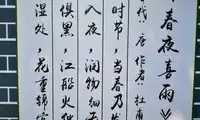 春夜喜雨》
代 唐 作者:杜甫
时节,当春乃
入夜,润物细
俱黑,江船火
湿处,花重锦官